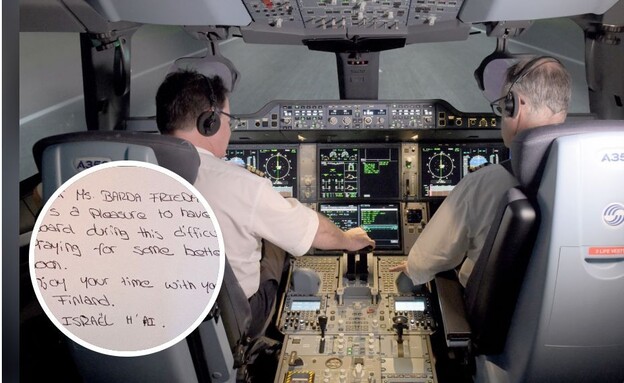 A350
A35
Ms. BARDA FRIED
s a pleasure to have
oard during this difficu
raying for some bette
oon.
njoy your time with yo
Finland.
ISRAËL H'AI.